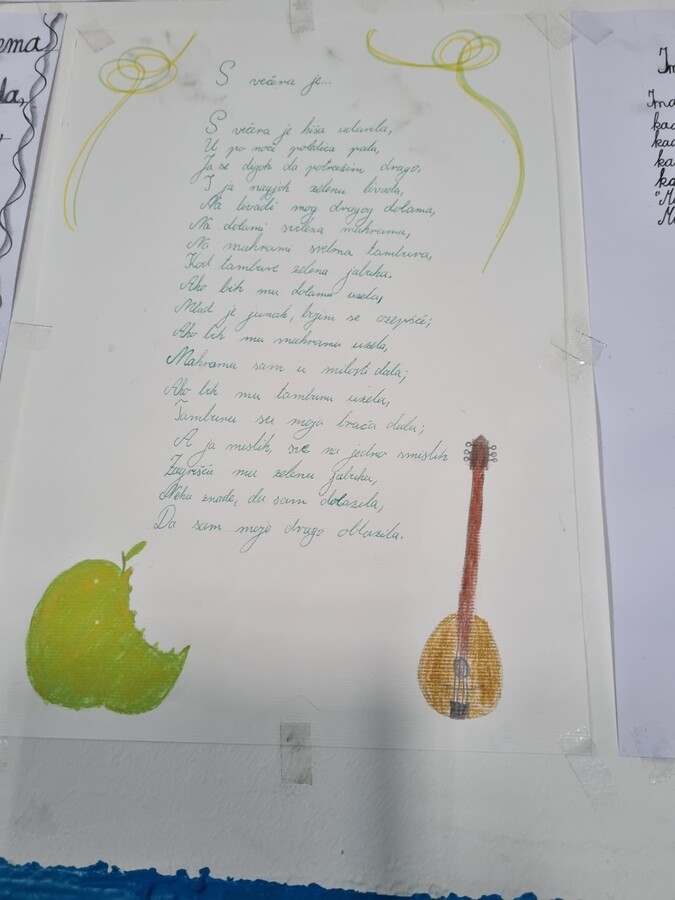 ema
S večera je...
S večera je kiša udarila,
U po noći poledica pala,
Ja se digoh da potražim drago,
I ja nagjoh zelenu livadu,
Na livadi mog dragog dolama,
Na dolami svilena mahrama,
Na mahrami srebrna tambura,
Kod tambure zelena jabuka.
Ako bih mu dolamu uzela,
Mlad je junak, bojim se ozepšće;
Ako bih mu mahramu uzela,
Mahramu sam u milosti dala;
Ako bih mu tamburu uzela,
Tamburu su moja braća dala;
A ja mislih, sve na jedno smislih
Zagrišću mu zelenu jabuku,
Neka znade, da sam dolazila,
Da sam moje drago oblazila.